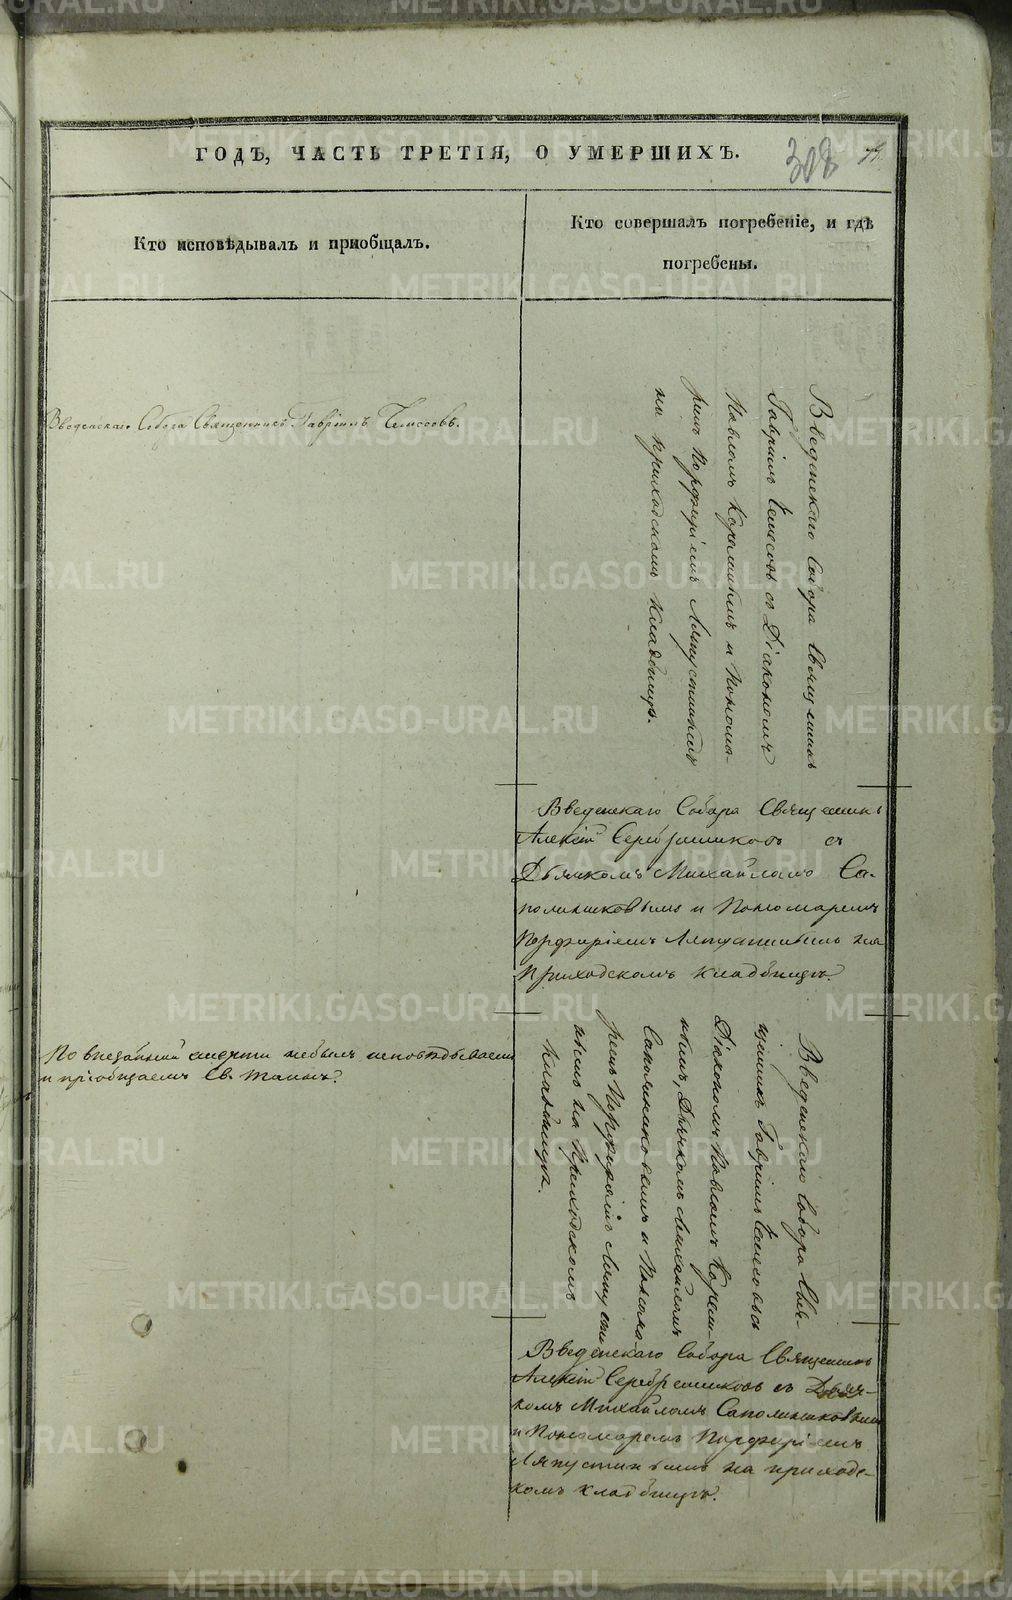 ГОДЪ, ЧАСТЬ ТРЕТІЯ, О УМЕРШИХЪ.
308
Кто исповѣдывалъ и пріобщалъ.
Кто совершалъ погребеніе, и гдѣ
погребены.
Введенскаго Собора Священникъ Гавріилъ
Введенскаго Собора Священникъ
Гавріилъ съ Діакономъ
Павломъ и Понома-
ремъ Порфиріемъ Ляпустинымъ
на приходскомъ кладбищѣ.
Введенскаго Собора Священникъ
Алексій Серебренниковъ съ
Дьячкомъ Михаиломъ Са-
полниковымъ и Пономаремъ
Порфиріемъ Ляпустинымъ на
Приходскомъ кладбищѣ.
По внезапной смерти небылъ исповѣдываемъ
и пріобщаемъ Св. Таинъ.
Введенскаго Собора Свя-
щенникъ Гавріилъ съ
Діакономъ Павломъ
Дьячкомъ Михаиломъ
Саполниковымъ и Понома-
ремъ Порфиріемъ Ляпусти-
нымъ на Приходскомъ
Кладбищѣ.
Введенскаго Собора Священникъ
Алексій Серебренниковъ съ Дьяч-
комъ Михаиломъ Саполниковымъ
и Пономаремъ Порфиріемъ
Ляпустинымъ на приходс-
комъ кладбищѣ.
METRIKI.GASO-URAL.RU